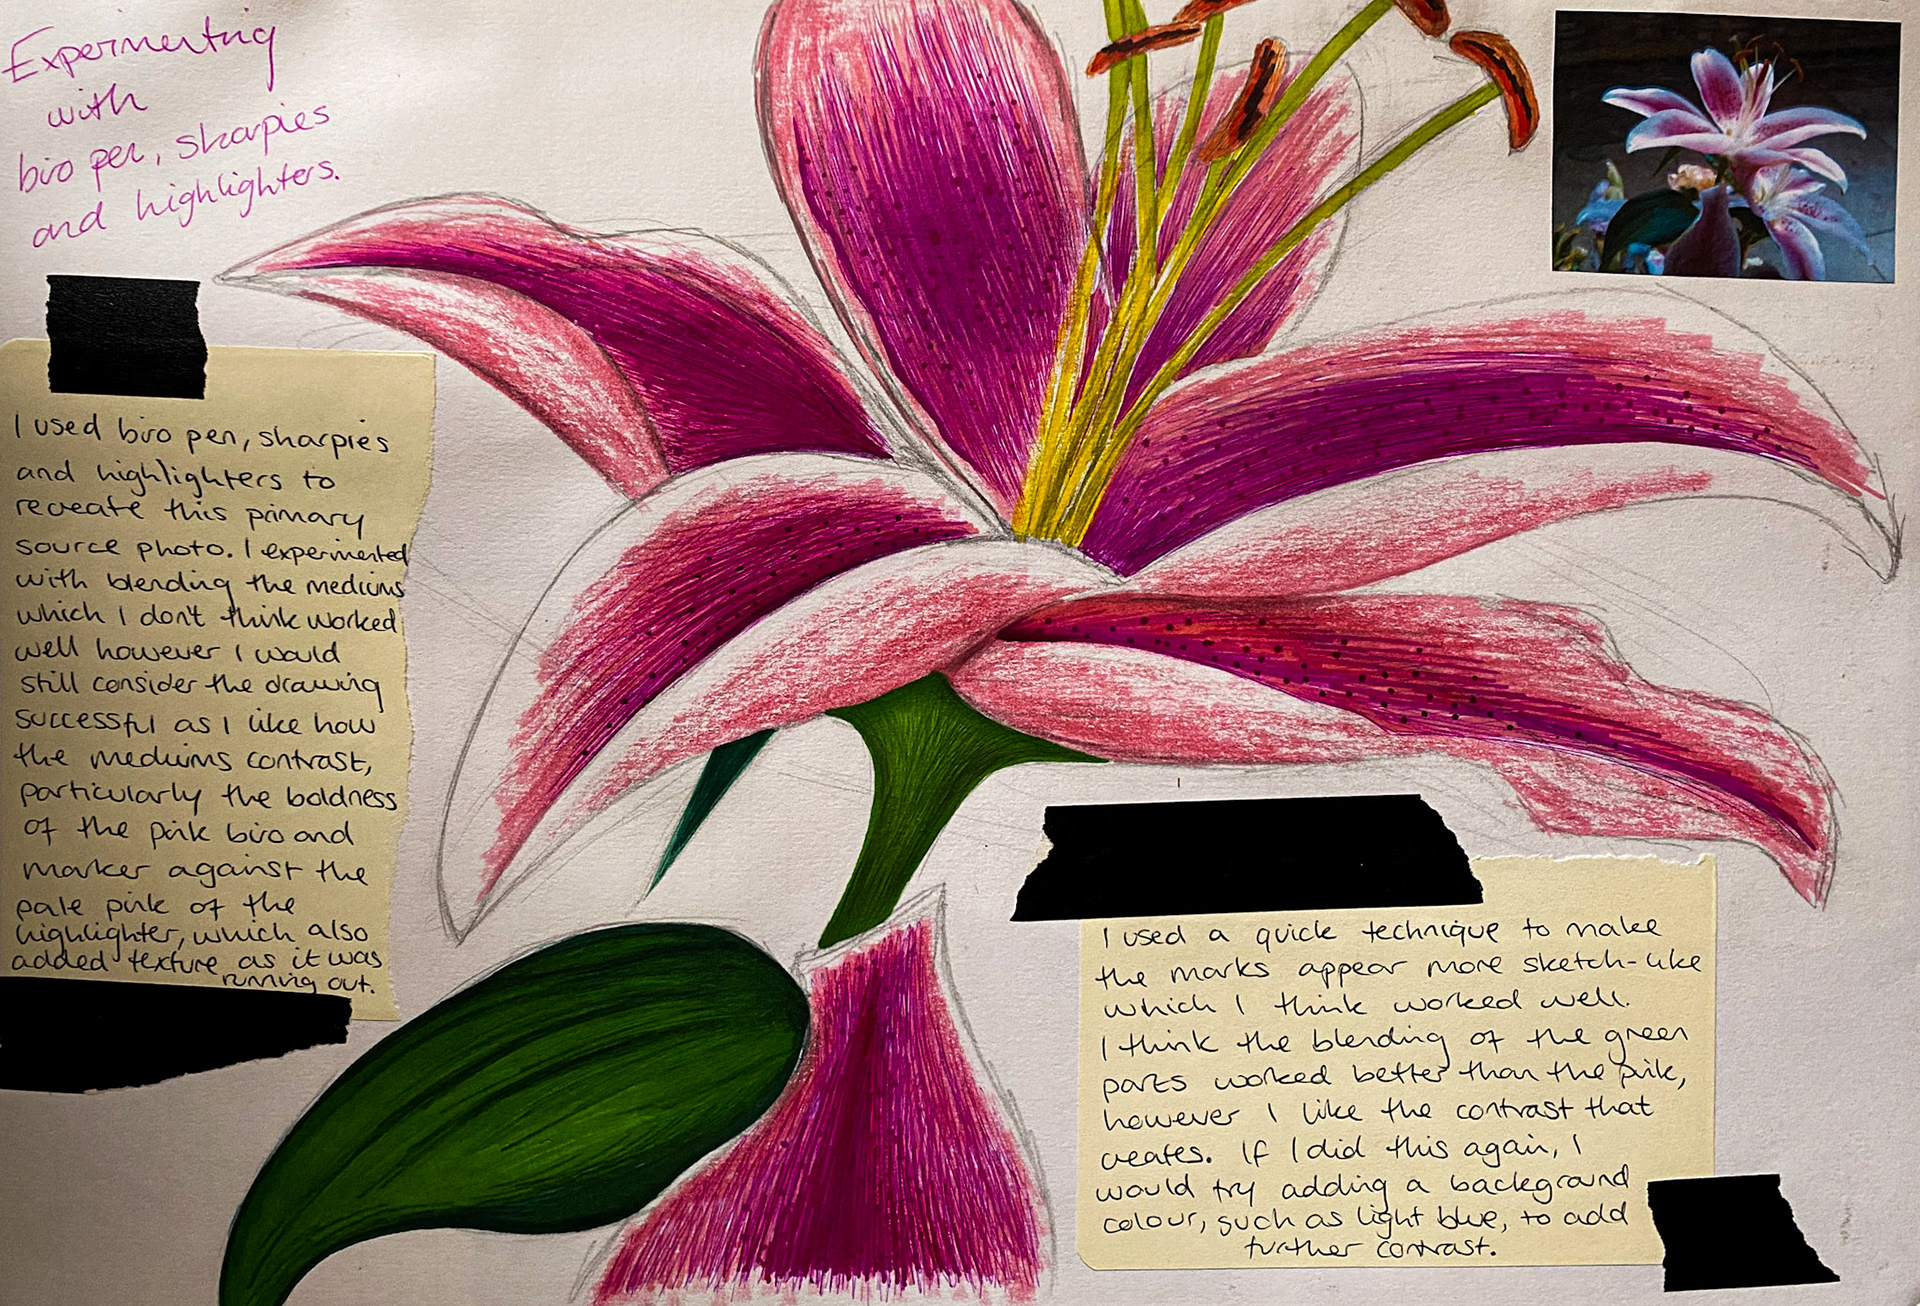 Experimenting
with
biro pen, sharpies
and highlighters.
I used biro pen, sharpies
and highlighters to
recreate this primary
source photo. I experimented
with blending the mediums
which I don't think worked
well however I would
still consider the drawing
successful as I like how
the mediums contrast,
particularly the boldness
of the pink biro and
marker against the
pale pink of the
highlighter, which also
added texture as it was
running out.
I used a quick technique to make
the marks appear more sketch-like
which I think worked well.
I think the blending of the green
parts worked better than the pink,
however I like the contrast that
creates. If I did this again, I
would try adding a background
colour, such as light blue, to add
further contrast.